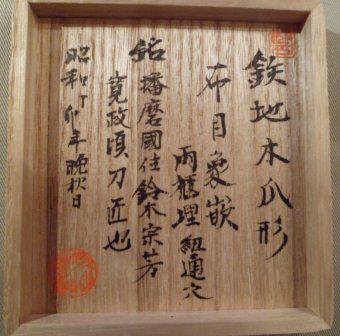 鉄地木瓜形
布目象嵌
両櫃埋組通穴
銘播磨國住鈴木宗芳
寛政頃刀匠也
昭和丁卯年晩秋日